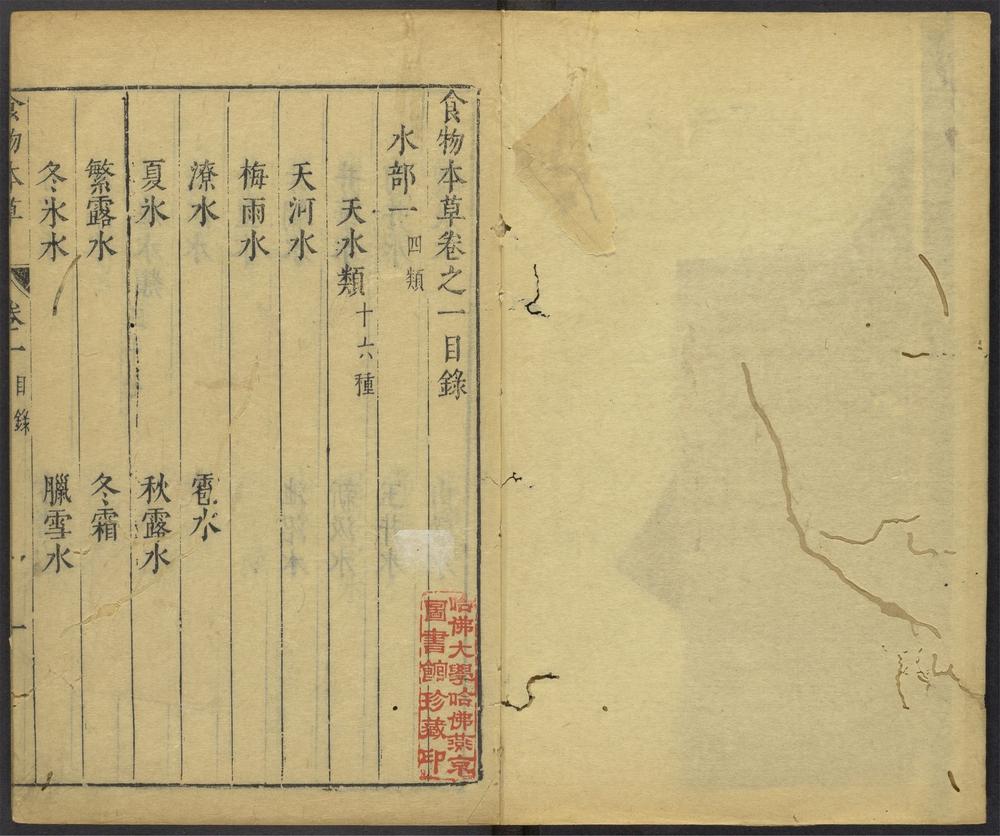 食物本草卷之一目錄
水部一 四類
天水類 十六種
天河水
梅雨水
潦水 雹水
夏氷 秋露水
繁露水 冬霜
冬氷水 臘雪水
食物本草 卷之一目錄 一
哈佛大學哈佛燕京
圖書館珍藏印